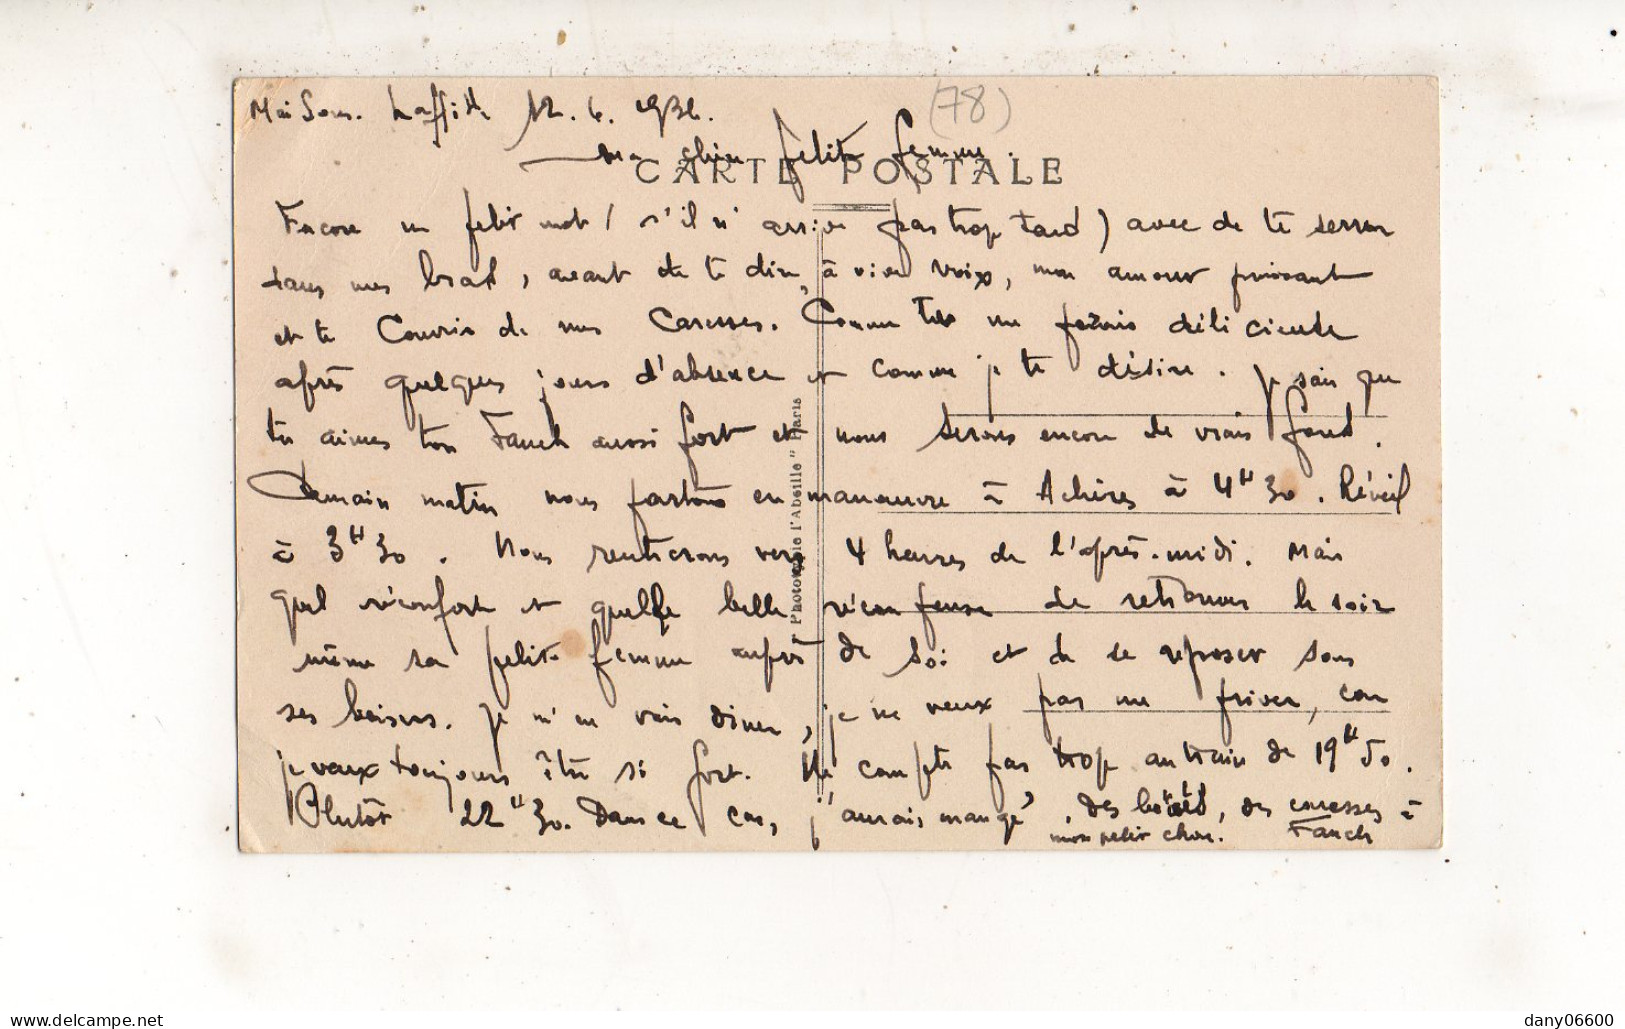 Maisons. Laffitte 12. 6. 1936.
(78)
Ma chère petite femme.
CARTE POSTALE
Encore un petit mot (s'il n'arrive pas trop tard) avec de te serrer
dans mes bras, avant de te dire, à vive voix, mon amour puissant
et te couvrir de mes caresses. Comme tu me ferais délicieuse
après quelques jours d'absence et comme je te désire. Je sais que
tu aimes ton Fanch aussi fort et nous serons encore de vrais fous.
Demain matin nous partons en manœuvre à Achères à 4H30. Réveil
à 3H30. Nous rentrerons vers 4 heures de l'après-midi. Mais
quel réconfort et quelle belle récompense de retrouver le soir
même sa petite femme auprès de soi et de se reposer sous
ses baisers. Je m'en vais diner, je ne veux pas me priver, car
je veux toujours être si fort. Ne compte pas trop au train de 19H50.
Plutôt 22H30. Dans ce cas, j'aurais mangé. des baisers, des caresses à
mon petit chou. Fanch
Phototypie l'Abeille" Paris
delcampe.net
dany06600